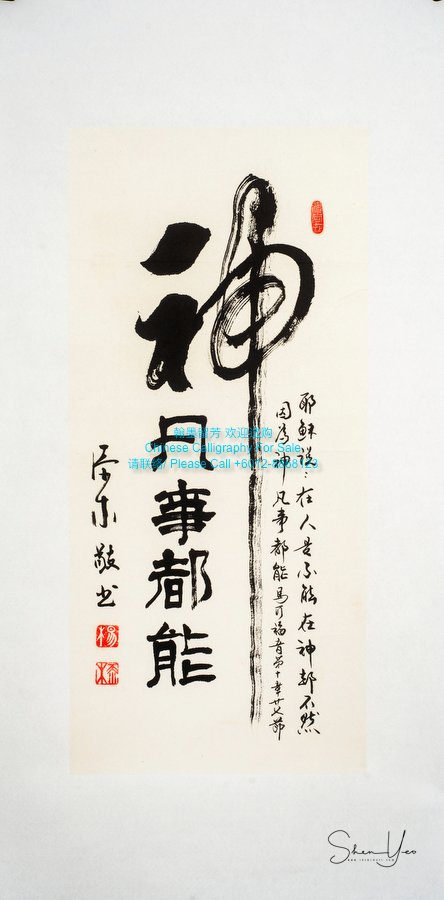 神
凡事都能
耶穌說：在人是不能在神却不然
因为神凡事都能马可福音第十章廿七節
荣木敬书
楊
翰墨留芳 欢迎选购
Chinese Calligraphy For Sale
请联络 Please Call
Shen Yeo